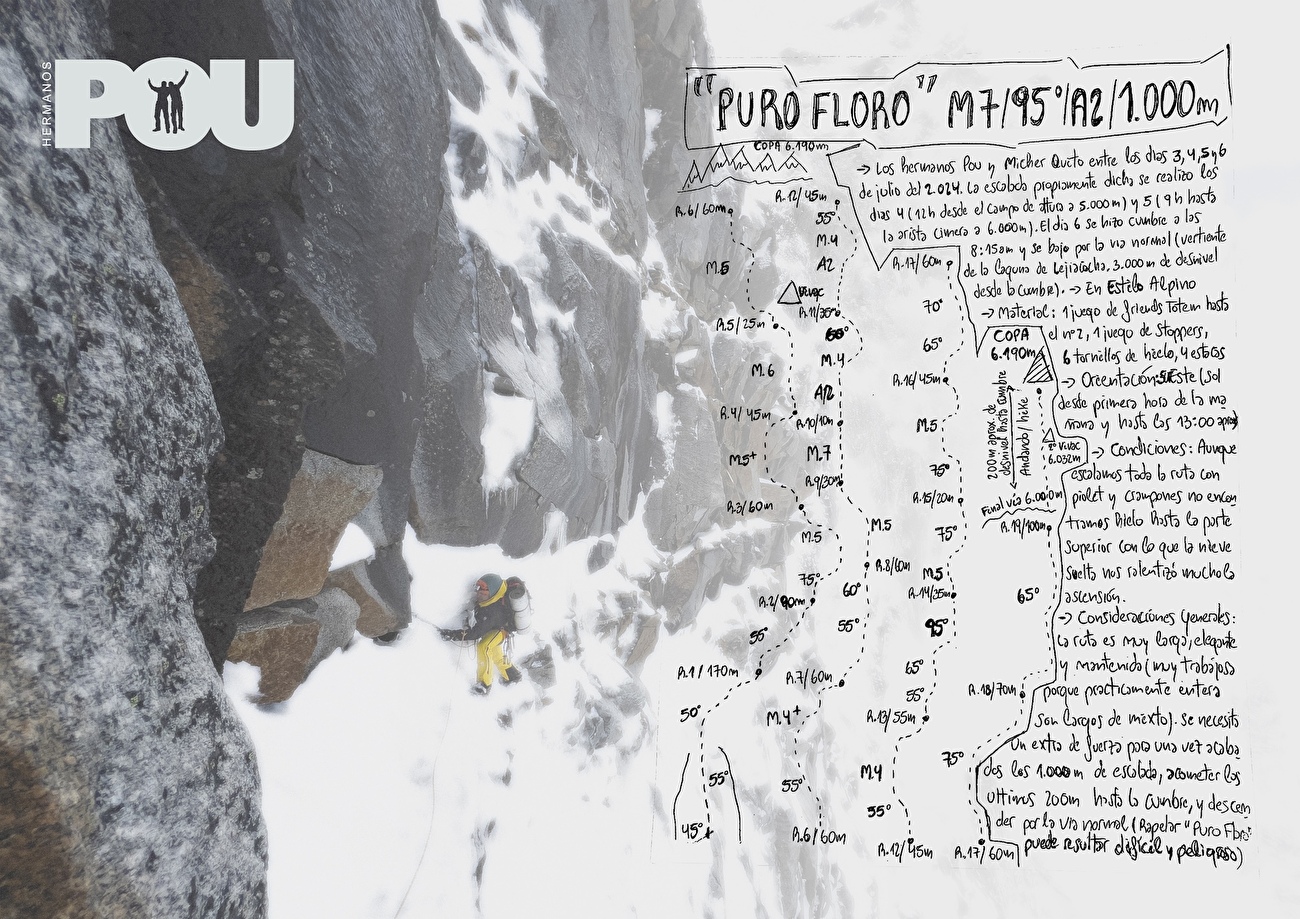 HERMANOS
POU
"PURO FLORO" M7/95°/A2/1.000m
→ Los hermanos Pou y Micher Quito entre los dias 3, 4, 5 y 6
de julio del 2.024. La escalada propiamente dicha se realizo los
dias 4 (12h desde el campo de altura a 5.000m) y 5 (9h hasta
la arista cimera a 6.000m). El dia 6 se hizo cumbre a las
8:15am y se bajo por la via normal (vertiente
de la laguna de Lejiacocha, 3.000m de desnivel
desde la cumbre). → En Estilo Alpino
→ Material: 1 juego de friends Totem hasta
el nº2, 1 juego de Stoppers,
6 tornillos de hielo, 4 estacas
→ Orientación: Este (sol
desde primera hora de la ma
ñana y hasta las 13:00 aprox)
→ Condiciones: Aunque
escalamos toda la ruta con
piolet y crampones no encon
tramos hielo hasta la parte
superior con lo que la nieve
suelta nos ralentizó mucho la
ascensión.
→ Consideraciones Generales:
La ruta es muy larga, elegante
y mantenida (muy trabajosa
porque practicamente entera
son largos de mixto). Se necesita
un extra de fuerza para una vez acaba
dos los 1.000m de escalada, acometer los
ultimos 200m hasta la cumbre, y descen
der por la via normal (Rapelar "Puro Floro"
puede resultar dificil y peligroso)
COPA 6.190m
R.6/60m
M.5
R.5/25m
M.6
R.4/45m
M5+
R.3/60m
M.5
75°
R.2/90m
55°
R.1/170m
50°
55°
45°
R.12/45m
55°
M.4
A2
Vivac
R.11/35m
60°
M.4
A2
R.10/10m
M.7
R.9/30m
M.5
R.8/60m
60°
55°
R.7/60m
M.4+
55°
R.6/60m
R.17/60m
70°
65°
R.16/45m
M.5
75°
R.15/20m
75°
M.5
R.14/35m
95°
65°
55°
R.13/55m
M.4
55°
R.12/45m
COPA
6.190m
200m aprox. de
desnivel hasta cumbre
Andando/hike
2º Vivac
6.032m
Final vía 6.000m
R.19/100m
65°
R.18/70m
75°
R.17/60m